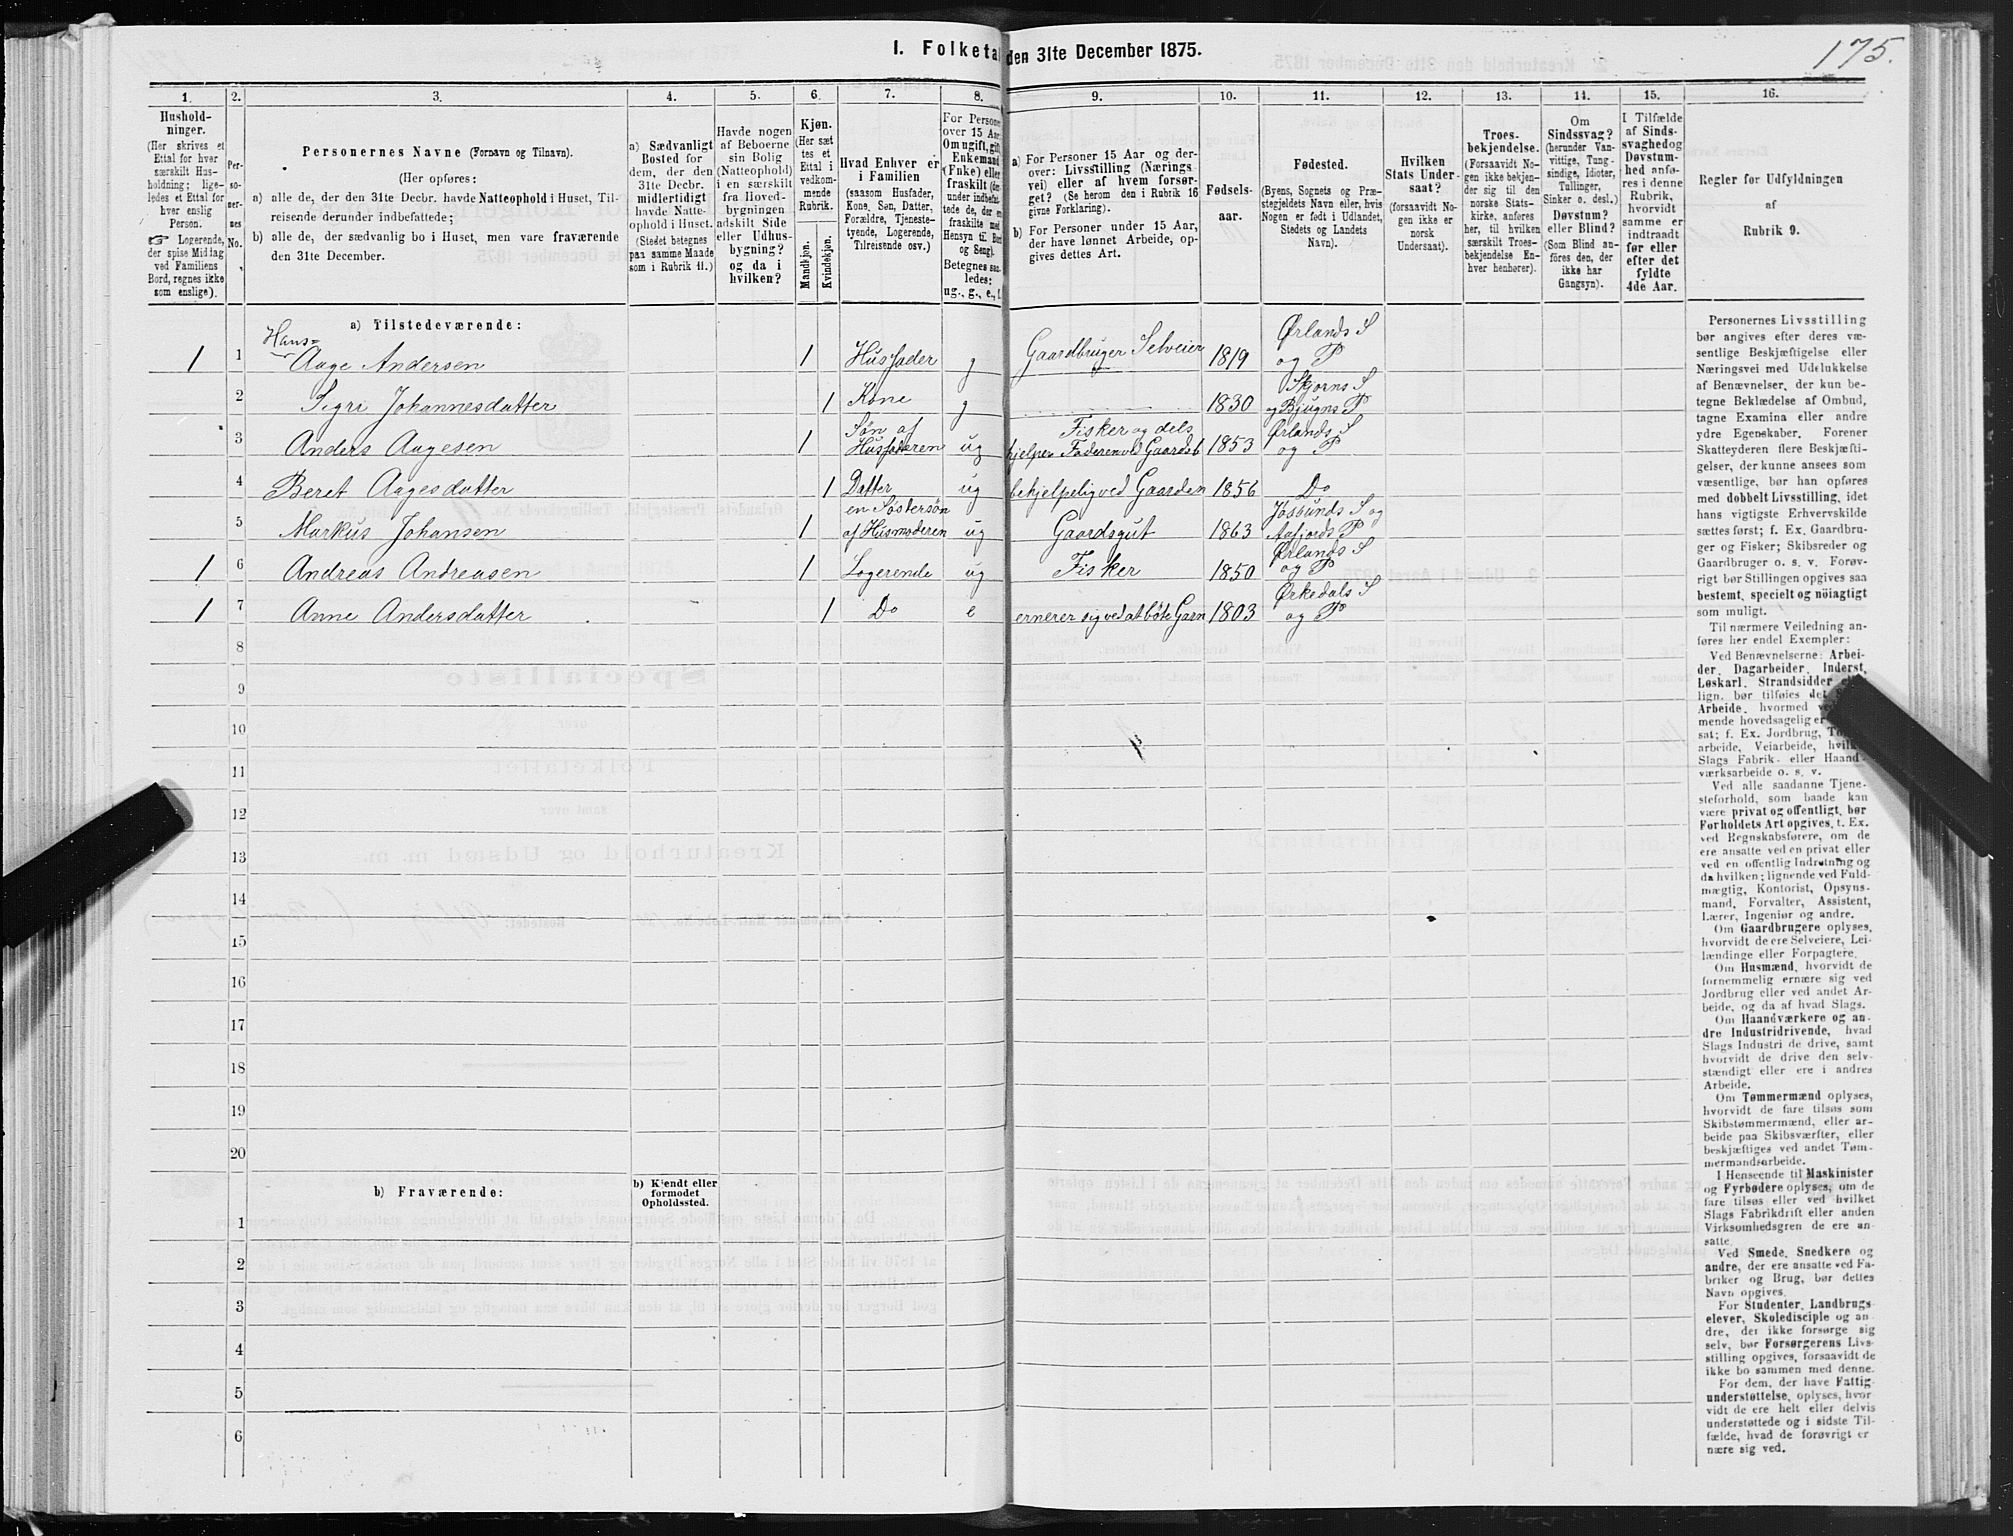 I. Folketal den 31te December 1875.
175.
1.
2.
3.
4.
5.
6.
7.
8.
9.
10.
11.
12.
13.
14.
15.
16.
Hushold-
ninger.
(Her skrives et
Ettal for hver
særskilt Hus-
holdning; lige-
ledes et Ettal for
hver enslig
Person.
☞ Logerende,
der spise Middag
ved Familiens
Bord, regnes ikke
som enslige).
Per-
so-
ner-
nes
No.
Personernes Navne (Fornavn og Tilnavn).
(Her opføres:
a) alle de, der den 31te Decbr. havde Natteophold i Huset, Til-
reisende derunder indbefattede;
b) alle de, der sædvanlig bo i Huset, men vare fraværende
den 31te December.
a) Sædvanligt
Bosted for
dem, der den
31te Decbr.
midlertidigt
havde Natte-
ophold i Huset.
(Stedet betegnes
paa samme Maade
som i Rubrik 11.)
Havde nogen
af Beboerne
sin Bolig
(Natteophold)
i en særskilt
fra Hoved-
bygningen
adskilt Side
eller Udhus-
bygning?
og da i
hvilken?
Kjøn.
(Her sæt
tes et
Ettal i
vedkom-
mende
Rubrik.
Mandkjøn.
Kvindekjøn.
Hvad Enhver er
i Familien
(saasom Husfader,
Kone, Søn, Datter,
Forældre, Tjeneste-
tyende, Logerende,
Tilreisende osv.)
For Persone
over 15 Aar
Om ugift, gift,
Enkemand
(Enke) eller
fraskilt (de
under indbefat-
tede de, der er
fraskilte med
Hensyn til Bord
og Seng).
Betegnes saa-
ledes:
ug., g., e., f.
a) For Personer 15 Aar og der-
over: Livsstilling (Nærings-
vei) eller af hvem forsør-
get? (Se herom den i Rubrik 16
givne Forklaring).
b) For Personer under 15 Aar,
der have lønnet Arbeide, op-
gives dettes Art.
Fødsels-
aar.
Fødested.
(Byens, Sognets og Præ-
stegjeldets Navn eller, hvis
Nogen er født i Udlandet,
Stedets og Landets
Navn).
Hvilken
Stats Under-
saat?
(forsaavidt No-
gen ikke er
norsk
Undersaat).
Troes-
bekjendelse.
(Forsaavidt No-
gen ikke bekjen-
der sig til den
norske Stats-
kirke, anføres
her, til hvilken
særskilt Troes-
bekjendelse En-
hver henhører).
Om
Sindssvag?
(herunder Van-
vittige, Tung-
sindige, Idioter,
Tullinger,
Sinker o. desl.)
Døvstum?
eller Blind?
(Som Blind an-
føres den, der
ikke har
Gangsyn).
I Tilfælde
af Sinds-
svaghed og
Døvstum-
hed anfø-
res i denne
Rubrik,
hvorvidt
samme er
indtraadt
før eller
efter det
fyldte
4de Aar.
Regler for Udfyldningen
af
Rubrik 9.
a) Tilstedeværende:
1 1 Hans= Aage Andersen 1 Husfader g Gaardbruger Selveier 1819 Ørlands S og P
2 Sigri Johannesdatter 1 Kone g 1830 Skjørns S og Bjugns P
3 Anders Aagesen 1 Søn af Husfaderen ug Fisker og dels hjelper Faderen ved Gaardsb 1853 Ørlands S og P
4 Beret Aagesdatter 1 Datter ug behjelpelig ved Gaarden 1856 Do
5 Markus Johansen 1 en Søstersøn af Husmoderen ug Gaardsgut 1863 Jøssunds S og Aafjords P
1 6 Andreas Andreasen 1 Logerende ug Fisker 1850 Ørlands S og P
1 7 Anne Andersdatter 1 Do e ernerer sig ved at böte Garn 1803 Ørkedals S og P
8
9
10
11
12
13
14
15
16
17
18
19
20
b) Fraværende:
b) Kjendt eller
formodet
Opholdssted.
1
2
3
4
5
6
Personernes Livsstilling
bør angives efter deres væ-
sentlige Beskjæftigelse eller
Næringsvei med Udelukkelse
af Benævnelser, der kun be-
tegne Beklædelse af Ombud,
tagne Examina eller andre
ydre Egenskaber. Forener
Skatteyderen flere Beskjæfti-
gelser, der kunne ansees som
væsentlige, bør han opføres
med dobbelt Livsstilling, idet
hans vigtigste Erhvervskilde
sættes først; f. Ex. Gaardbru-
ger og Fisker; Skibsreder og
Gaardbruger o. s. v. Forøv-
rigt bør Stillingen opgives saa
bestemt, specielt og nøiagtigt
som muligt.
Til nærmere Veiledning an-
føres her endel Exempler:
Ved Benævnelserne: Arbei-
der, Dagarbeider, Inderst,
Løskarl, Strandsidder
lign. bør tilføies det
Arbeide, hvormed
mende hovedsagelig er
sat; f. Ex. Jordbrug,
arbeide, Veiarbeide, hvil
Slags Fabrik- eller Haand-
værksarbeide o. s. v.
Ved alle saadanne Tjene-
steforhold, som baade kan
være privat og offentligt, bør
Forholdets Art opgives, t. Ex.
ved Regnskabsførere, om de
ere ansatte ved en privat eller
ved en offentlig Indretning og
da hvilken; lignende ved Fuld-
mægtig, Kontorist, Opsyns-
mand, Forvalter, Assistent,
Lærer, Ingeniør og andre.
Om Gaardbrugere oplyses,
hvorvidt de ere Selveiere, Lei-
lændinge eller Forpagtere.
Om Husmænd, hvorvidt de
fornemmelig ernære sig ved
Jordbrug eller ved andet Ar-
beide, og da af hvad Slags.
Om Haandværkere og an-
dre Industridrivende, hvad
Slags Industri de drive, samt
hvorvidt de drive den selv-
stændigt eller ere i andres
Arbeide.
Om Tømmermænd oplyses,
hvorvidt de fare tilsøs som
Skibstømmermænd, eller ar-
beide paa Skibsværfter, eller
beskjæftiges ved andet Tøm-
mermandsarbeide.
I Henseende til Maskinister
og Fyrbødere oplyses, om de
fare tilsøs eller ved hvilket
Slags Fabrikdrift eller anden
Virksomhedsgren de ere an-
satte.
Ved Smede, Snedkere og
andre, der ere ansatte ved Fa-
briker og Brug, bør dettes
Navn opgives.
For Studenter, Landbrugs-
elever, Skoledisciple og an-
dre, der ikke forsørge sig
selv, bør Forsørgerens Livs-
stilling opgives, forsaavidt de
ikke bo sammen med denne.
For dem, der have Fattig-
understøttelse, oplyses, hvor-
vidt de ere helt eller delvis
understøttede og i sidste Til-
fælde, hvad de forøvrigt er-
nære sig ved.